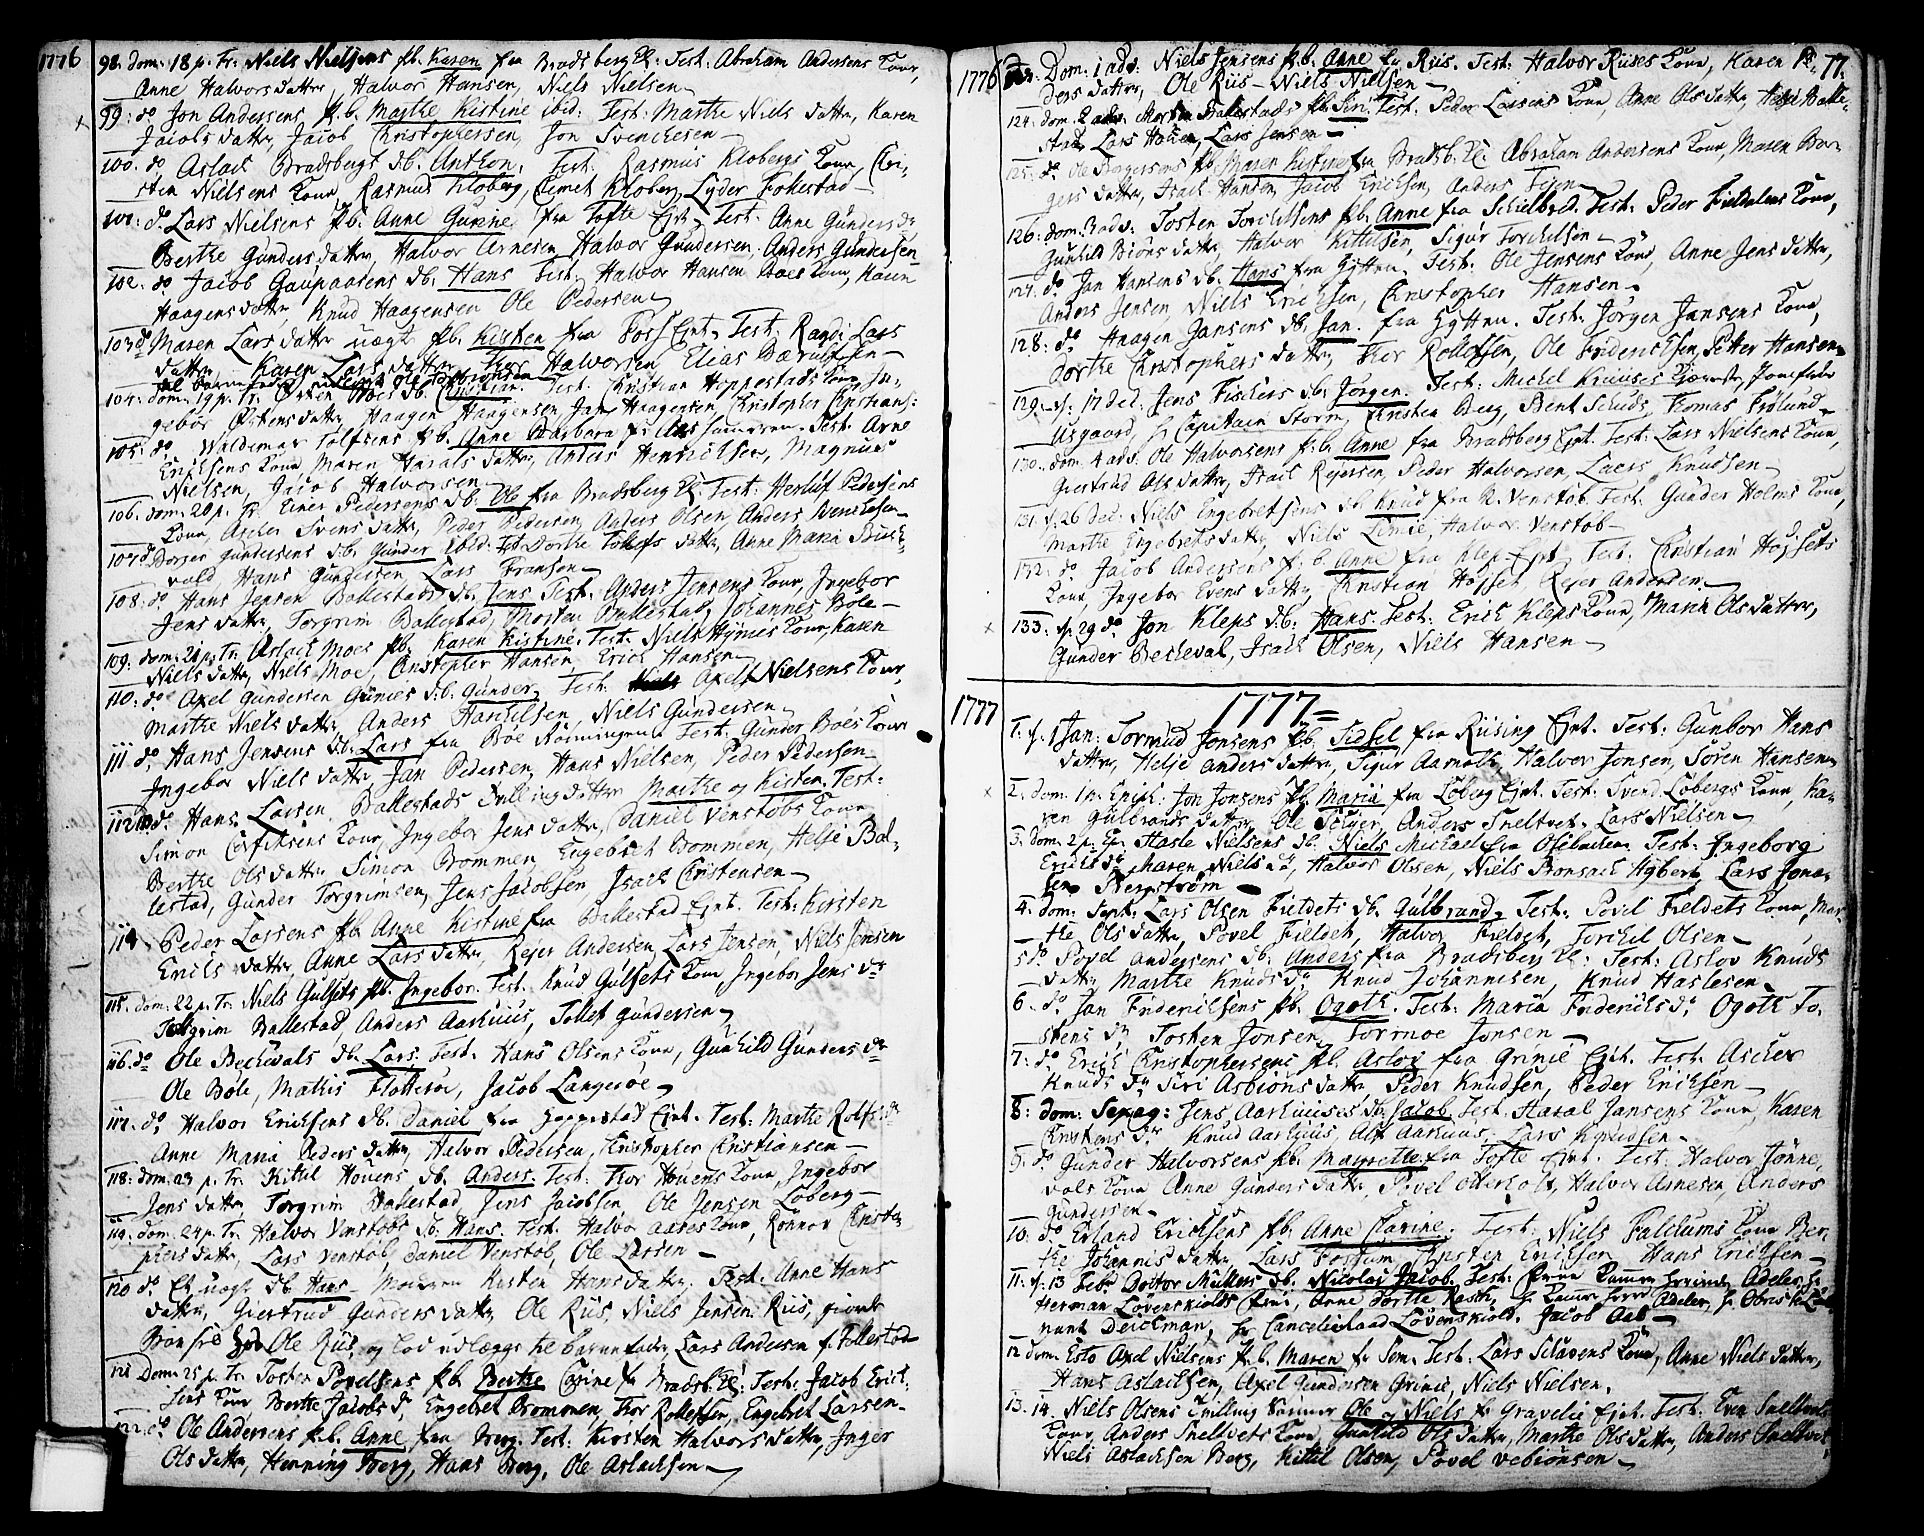 1776
98. dom: 18 p. Tr: Niels Nielsens pb. Karen fra Bradsberg Test: Abraham Andersens Kone,
Anne Halvorsdatter, Halvor Hansen, Niels Nielsen
99: do Jon Andersens pb. Marthe Kistine ibid: Test: Marthe Nielsdatter, Karen
Jacobsdatter, Jacob Christophersen, Jon Svenchesen
100. do Aslack Bradsbergs db. Anthon. Test: Rasmus Klobergs Kone, Kri-
sten Nielsens Kone Rasmus Kloberg, Clemet Kloberg, Lyder Follestad
101: do Lars Nielsens pb. Anne Gurine fra Tofte Ejt. Test: Anne Gundersdr
Berthe Gundersdatter, Halvor Arnesen Halvor Gundersen, Anders Gundersen
102. do Jacob Gaupaasens db. Hans Test: Halvor Hansen Boes Kone, Karen
Haagensdatter Knud Haagensen Ole Pedersen
103 do Maren Larsdatter uægte pb. Kirsten fra Foss Ejt. Test: Lars
datter, Karen Larsdatter, Thor Halvorsen, Elias
104: dom. 19 p. Tr. Boes db. Christian. Test: Christian Hoppestads Kone, In-
gebor Østensdatter, Haagen Haagensen, Jan Haagensen, Christopher Christians:
105: do Woldemar Tolfsens pb. Anne Barbara Test: Arne
Erichsens Kone Maren Haralsdatter, Anders Henrichsen, Magnus
Nielsen, Jacob Halvorsen
106. dom. 20 p. Tr. Einer Pedersens db. Ole fra Bradsberg Test: Herluf Pedersens
Kone, Ascher Svensdatter, Peder Pedersen, Anders Olsen, Anders Svenchesen
107 do Borger Gundersens db. Gunder ibid: Test Dorthe Tollefsdatter, Anne Maria
vold Hans Gundersen, Lars Fransen
108: do Hans Jensen Ballestads db. Jens Test: Anders Jensens Kone, Ingebor
Jensdatter, Torgrim Ballestad, Morten Ballestad, Johannes Bøle
109: dom: 21 p: Tr: Aslack Moes pb. Karen Kistine. Test: Niels Kone, Karen
Nielsdatter, Niels Moe, Christopher Hansen, Erich Hansen
110: do Axel Gundersen Grinies db. Gunder Test: Axel Nielsens Kone,
Marthe Nielsdatter Anders Nielsen, Niels Gundersen
111 do Hans Jensens db: Lars fra Bøe Rønningen Test: Gunder Boes Kone
Ingebor Nielsdatter, Jan Pedersen Hans Nielsen, Peder Pedersen
112 do. Hans Larsen Ballestads Tvillingdøttre Marthe og Kirsten. Test:
Simon Kone, Ingebor Jensdatter, Daniel Venstøbs Kone
Berthe Olsdatter Simon Brommen, Engebret Brommen, Helje Bal-
lestad, Gunder Torgrimsen, Jens Jacobsen, Isach Christensen
114. Peder Larsens pb. Anne Kistine fra Ballestad Ejt. Test: Kirsten
Erichsdatter, Anne Larsdatter, Rejer Andersen, Lars Jensen, Niels Jensen
115. dom: 22 p. Tr. Niels Gulsets pb. Ingebor. Test. Knud Gulsets Kone, Ingebor Jensdr
Torgrim Ballestad, Anders Aarhuus, Tollef Gundersen
116. do Ole Bechevals db. Lars. Test: Hans Olsens Kone, Gunhild Gundersdr
Ole Bøle, Mathis Flotterøe, Jacob Langerøe
117. do Halvor Erichsens db. Daniel fra Hoppestad Ejt. Test: Marthe Rolfsdr
Anne Maria Pedersdatter, Halvor Pedersen, Christopher Christiansen
118: dom. 23 p. Tr. Kittil Houens db. Anders. Test: Thor Houens Kone, Ingebor
Jensdatter, Torgrim Ballestad, Jens Jacobsen, Ole Jensen Loberg
119. dom. 24 p. Tr. Halvor Venstøbs db. Hans. Test: Halvor Aases Kone, Ronnov Christo-
phersdatter, Lars Venstøb, Daniel Venstøb, Ole Larsen
120 do Et uægte db. Hans Moderen Kirsten Hansdatter. Test: Anne Hans
datter, Giertrud Gundersdatter, Ole Riis, Niels Jensen Riis,
Ole Riis, og lod udlægge til barnefader Lars Andersen f. Follestad
121 Dom: 25 p. Tr. Tosten Povelsens pb. Berthe Carine fr Bradsb. Test: Jacob Erich-
sens Kone Berthe Jacobsdr, Engebret Brommen, Thor Rollefsen, Engebret Larsen
122. do Ole Andersens pb. Anne fra Berg. Test: Kirsten Halvorsdatter, Inger
Olsdatter, Henning Berg, Hans Berg, Ole Aslachsen
77.
1776
123. Dom: 1 adv: Niels Jensens pb. Anne fr Riis. Test: Halvor Riises Kone, Karen Pe-
dersdatter, Ole Riis Niels Nielsen
124. dom 2 adv: Morten Ballestads pb. Siri. Test. Peder Larsens Kone, Anne Olsdatter, Helje Balle-
stad Lars Houen, Lars Jensen
125. do Ole Borgersens pb. Maren Kistine fra Bradsb. Abraham Andersens Kone, Maren Bor-
gersdatter, Isach Hansen, Jacob Erichsen, Anders
126. dom. 3 adv. Tosten Torchilsens pb. Anne fra Schielbred. Test: Peder Fieldalens Kone,
Gunhild Biønsdatter, Halvor Kittilsen, Sigur Torchilsen
127. do Jan Hansens db. Hans fra Hytten. Test: Ole Jensens Kone, Anne Jensdatter,
Anders Jensen, Niels Erichsen, Christopher Hansen
128: do Haagen Jansens db. Jan. fra Hytten. Test: Jørgen Jansens Kone,
Dorthe Christophersdatter, Thor Rollefsen, Ole Friderichsen, Petter Hansen
129. d. 17 Dec. Jens Fischers db. Jørgen. Test: Michel Kruuses Jomfrue
Usgaard, Hr Capitain Storm, Christen Berg, Bent Schuds, Thomas Frølund
130. dom. 4 adv. Ole Halvorsens pb. Anne fra Bradsberg Ejt. Test: Lars Nielsens Kone,
Giertrud Olsdatter, Isach Rejersen, Peder Halvorsen, Laers Knudsen
131. d. 26 Dec. Niels Engebretsens db. Knud fra N. Venstøb. Test. Gunder Holms Kone,
Marthe Engebretsdatter, Niels Limie, Halvor Venstøb
132. do Jacob Andersens pb. Anne fra Klep Ejt. Test. Christian Højsets
Kone, Ingebor Evensdatter, Christian Højset, Rejer Andersen
133: d. 29 do Jon Kleps db: Hans. Test: Erich Kleps Kone, Maria Olsdatter,
Gunder Becheval, Isach Olsen, Niels Hansen
1777
1777
1. d. 1 Jan: Tormud Jonsens pb. Sidsel fra Riising Ejt. Test: Gunbor Hans
datter, Helje Andersdatter, Sigur Aamoth, Halvor Jonsen, Søren Hansen
2. dom. 1 p. Epiph. Jon Jonsens pb. Maria fra Loberg Ejt. Test: Svend Lobergs Kone, Ka-
ren Gulbrandsdatter Ole Anders Sneltvet. Lars Nielsen
3. dom. 2 p. Ep. Hasle Nielsens db. Niels Michael fra Test: Ingeborg
Erichsdr, Maren Nielsdr, Halvor Olsen, Niels Bronsach Hyberg, Lars Jona-
sen
4. dom: Sept. Lars Olsen Fieldets db. Gulbrand. Test: Povel Fieldets Kone, Mar-
the Olsdatter, Povel Fieldet, Halvor Fieldet, Torchil Olsen
5 do Povel Andersens db. Anders fra Bradsberg Test: Aslov Knuds
datter, Marthe Knudsdr Knud Johannisen, Knud Haslesen
6. do Jan Friderichsens pb. Ogoth. Test: Maria Friderichsdr. Ogoth To-
stensdr, Tosten Jonsen Tormoe Jonsen
7: do Erich Christophersens pb. Aslov fra Grinie Ejt. Test: Ascher
Knudsdr Siri Asbiønsdatter, Peder Knudsen, Peder Erichsen
8: dom: Sexag: Jens Aarhuuses db. Jacob Test: Haral Jansens Kone, Karen
Christensdr Knud Aarhuus, Alf Aarhuus. Lars Knudsen
9. do Gunder Halvorsens pb. Margrethe fra Tofte Ejt. Test: Halvor Jønne-
vals Kone Anne Gundersdatter, Povel Otterholt, Halvor Arnesen, Anders
Gundersen
10. do Erland Erichsens pb. Anne Carine. Test: Niels Falchums Kone Ber-
the Johannisdatter, Lars Fossum, Christen Erichsen Hans Erichsen
11. d. 13 Febr: Doctor Müllers db. Nicolai Jacob. Test: Adeler, Fr
Herman Løvenskiolds Frue, Anne Dorthe Rasch, Hr Adeler, Hr
nant Deichman, Hr Cancelieraad Løvenskiold. Jacob Aal
12 dom. Esto Axel Nielsens pb. Maren fr Sem. Test. Lars Sclavens Kone, Anne Nielsdatter,
Hans Aslachsen, Axel Gundersen Grinie, Niels Nielsen.
13. 14. Niels Olsens Tvilling Sønner Ole og Niels fr Gravelie Ejt. Test. Even Sneltvets
Kone, Anders Snelvets Kone, Gunhild Olsdatter, Marthe Olsdatter, Anders Sneltvet
Niels Aslachsen Berg, Kittil Olsen, Povel Vebiønsen